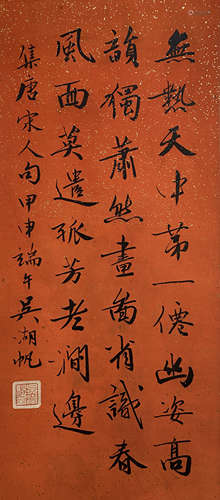 無熱天中苐一僊幽姿高
韻獨蕭然畫啚省識春
風面莫遣孤芳老澗邊
集唐宋人句甲申端午吳湖帆